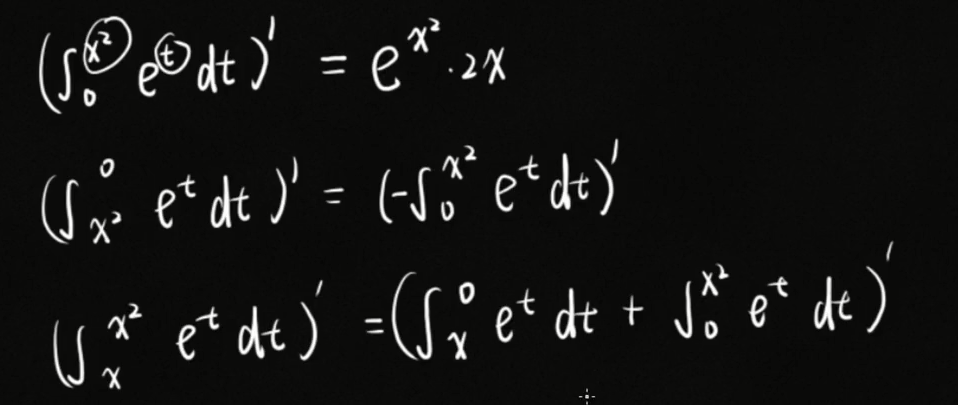 (∫₀^{x²} e^t dt)' = e^{x²} · 2x
(∫_{x²}^0 e^t dt)' = (-∫₀^{x²} e^t dt)'
(∫_x^{x²} e^t dt)' = (∫_x^0 e^t dt + ∫₀^{x²} e^t dt)'